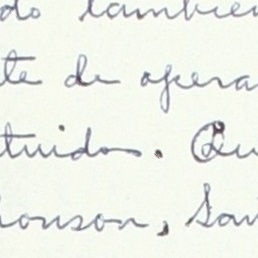 do tambien
te de opera
tuidos. Qu
honson, San